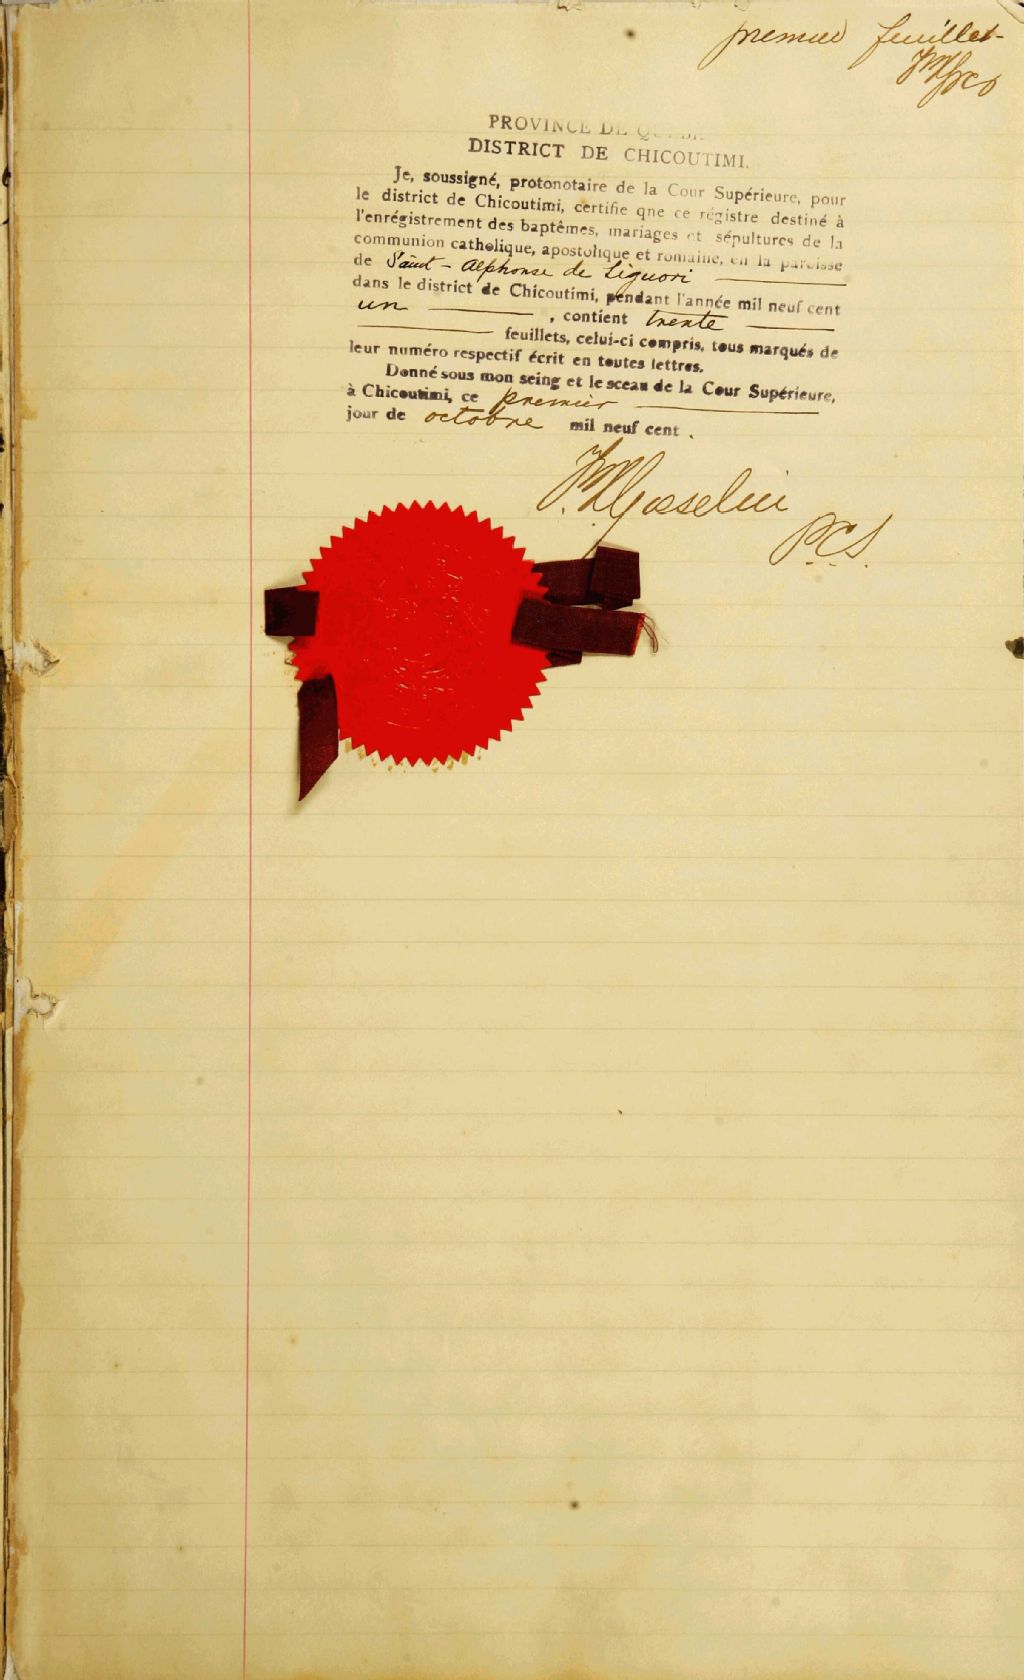 premier feuillet
PROVINCE DE
DISTRICT DE CHICOUTIMI.
Je, soussigné, protonotaire de la Cour Supérieure, pour
le district de Chicoutimi, certifie qne ce régistre destiné à
l'enrégistrement des baptêmes, mariages et sépultures de la
communion catholique, apostolique et romaine, en la paroisse
de Saint-Alphonse de Liguori
dans le district de Chicoutimi, pendant l'année mil neuf cent
un , contient trente
feuillets, celui-ci compris, tous marqués de
leur numéro respectif écrit en toutes lettres.
Donné sous mon seing et le sceau de la Cour Supérieure,
à Chicoutimi, ce premier
jour de octobre mil neuf cent .
Gosselin
P.C.S.